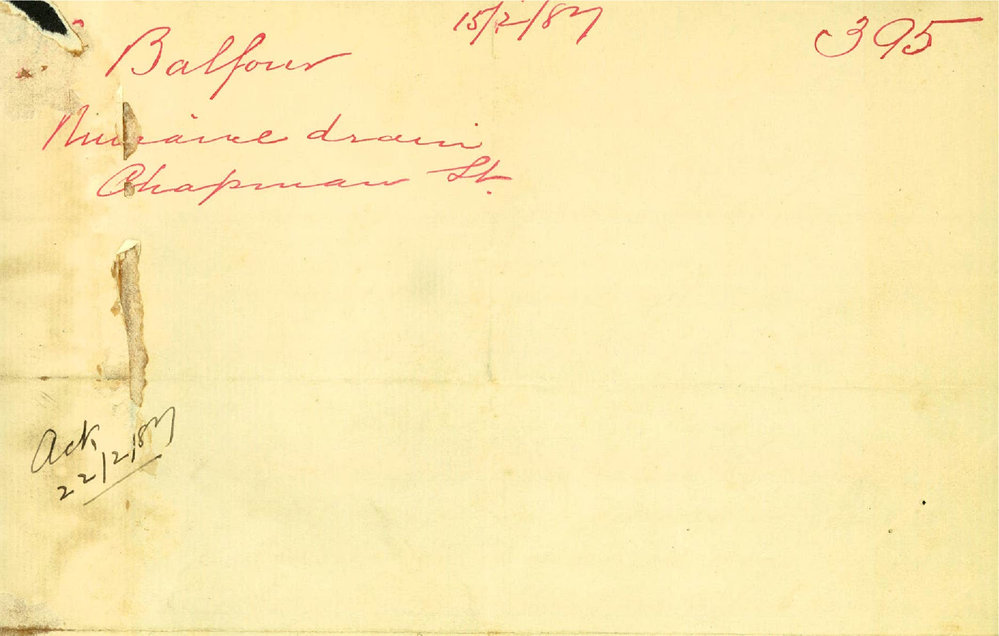 15/2/87
395
Balfour
drain
Chapman St.
Ack
22/2/87